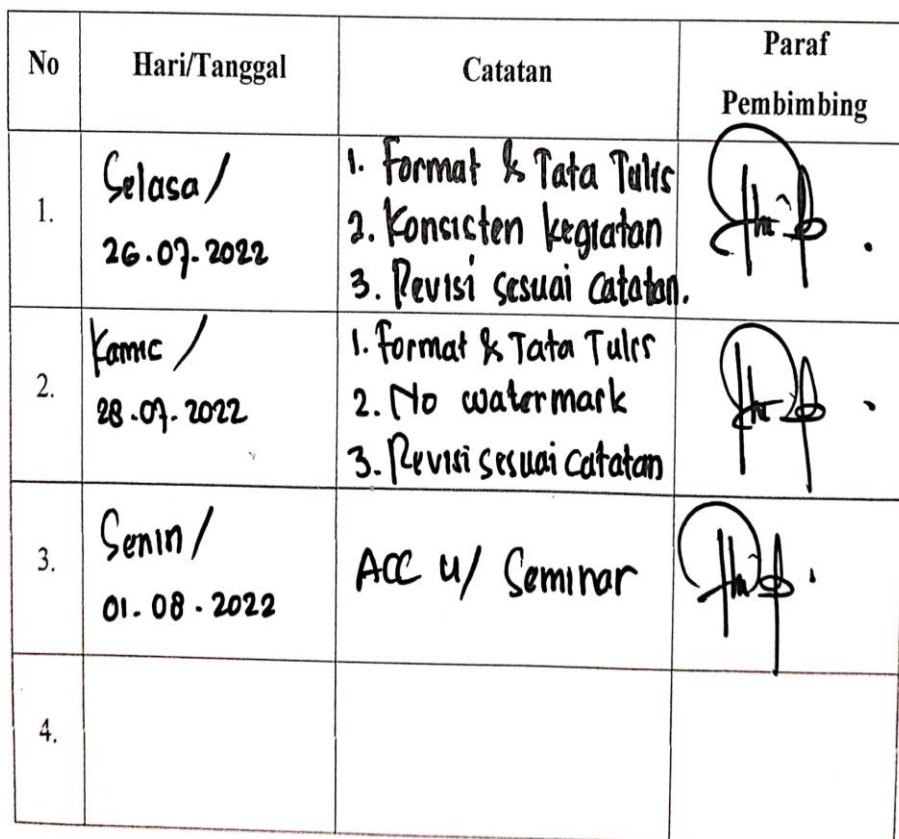 No Hari/Tanggal Catatan Paraf Pembimbing
1.
Selasa/
26.07.2022
1. Format & Tata Tulis
2. Konsisten kegiatan
3. Revisi sesuai catatan.
2.
Kamis/
28.07.2022
1. Format & Tata Tulis
2. No watermark
3. Revisi sesuai catatan
3.
Senin/
01.08.2022
ACC u/ Seminar
4.